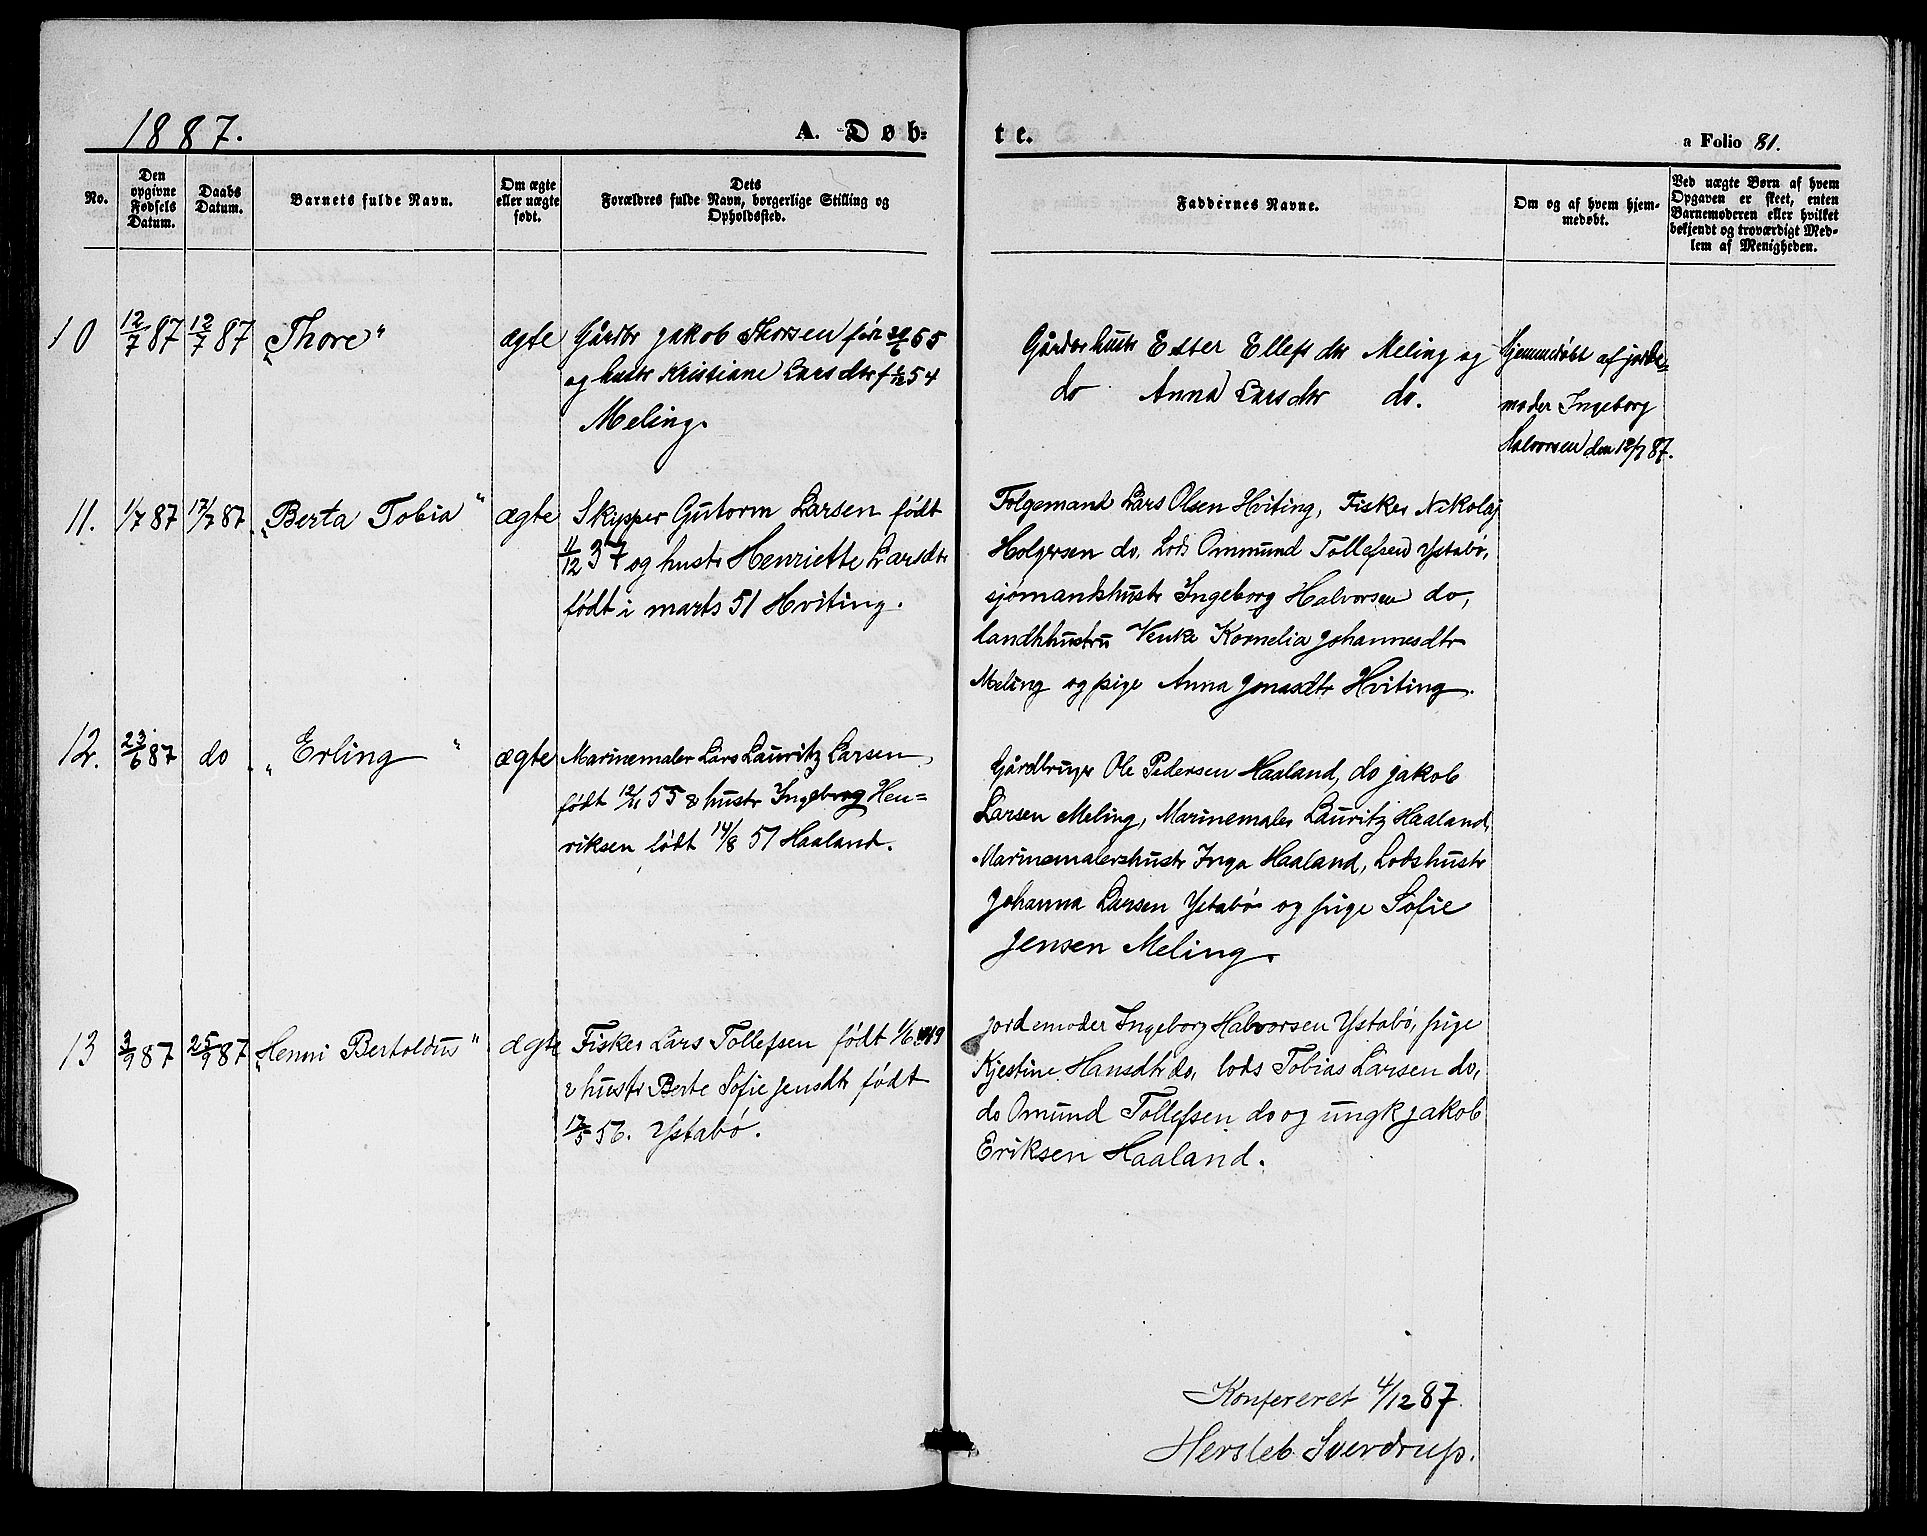 1887.
A. Døb-
te.
a Folio 81.
No.
Den opgivne Fødsels Datum.
Daabs Datum.
Barnets fulde Navn.
Om ægte eller uægte født.
Dets Forældres fulde Navn, borgerlige Stilling og Opholdssted.
Faddernes Navne.
Om og af hvem hjemmedøbt.
Ved uægte Børn af hvem Opgaven er skeet, enten Barnemoderen eller hvilket bekjendt og troværdigt Medlem af Menigheden.
10 12/7 87 12/7 87 „Thore" ægte
Gårdbr jakob Thorsen 55
og hustr Kristiane Larsdtr f 54
Meling.
Gårdbrhustr Ester Ellefsdtr Meling og
do Anna Larsdtr do.
Hjemmedøbt af jorde-
moder Ingeborg
Halvorsen den 12/7 87.
11. 1/7 87 17/7 87 „Berta Tobia" ægte
Skypper Gutorm Larsen født
11/12 37 og hustr Henriette Larsdtr
født i marts 51 Hviting.
Folgemand Lars Olsen Hviting, Fisker Nikolaj
Holgersen do, Lods Ommund Tollefsen Ystabø,
sjømandshustr Ingeborg Halvorsen do,
landhhustru Venke Kornelia Johannesdtr
Meling og pige Anna Jonasdtr Hviting.
12. 23/6 87 do „Erling" ægte
Marinemaler Lars Lauritz Larsen,
født 12/11 55 & hustr Ingeborg Hen-
riksen født 14/8 57 Haaland.
Gårdbruger Ole Pedersen Haaland, do jakob
Larsen Meling, Marinemaler Lauritz Haaland,
Marinemalershustr Inga Haaland, Lodshustr
Johanna Larsen Ystabø og pige Sofie
Jensen Meling.
13 3/9 87 25/9 87 „Henni Bertoldus" ægte
Fisker Lars Tollefsen født 1/6 49
& hustr Berte Sofie Jensdtr født
17/5 56. Ystabø.
Jordemoder Ingeborg Halvorsen Ystabø, pige
Kjestine Hansdtr do, lods Tobias Larsen do,
do Omund Tollefsen do og ungk jakob
Eriksen Haaland.
Konfereret 4/12 87.
Hersleb Sverdrup.